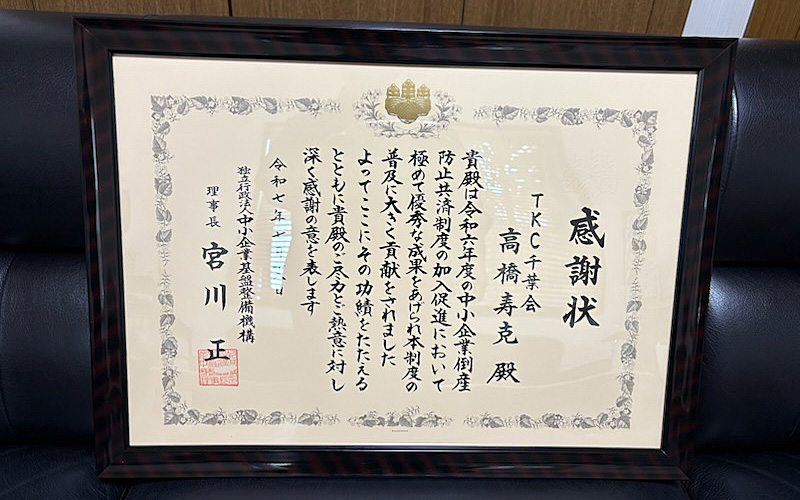 感謝状
TKC千葉会
高橋寿克 殿
貴殿は令和六年度の中小企業倒産
防止共済制度の加入促進において
極めて優秀な成果をあげられ本制度の
普及に大きく貢献をされました
よってここにその功績をたたえる
とともに貴殿のご尽力とご熱意に対し
深く感謝の意を表します
令和七年
独立行政法人中小企業基盤整備機構
理事長 宮川 正